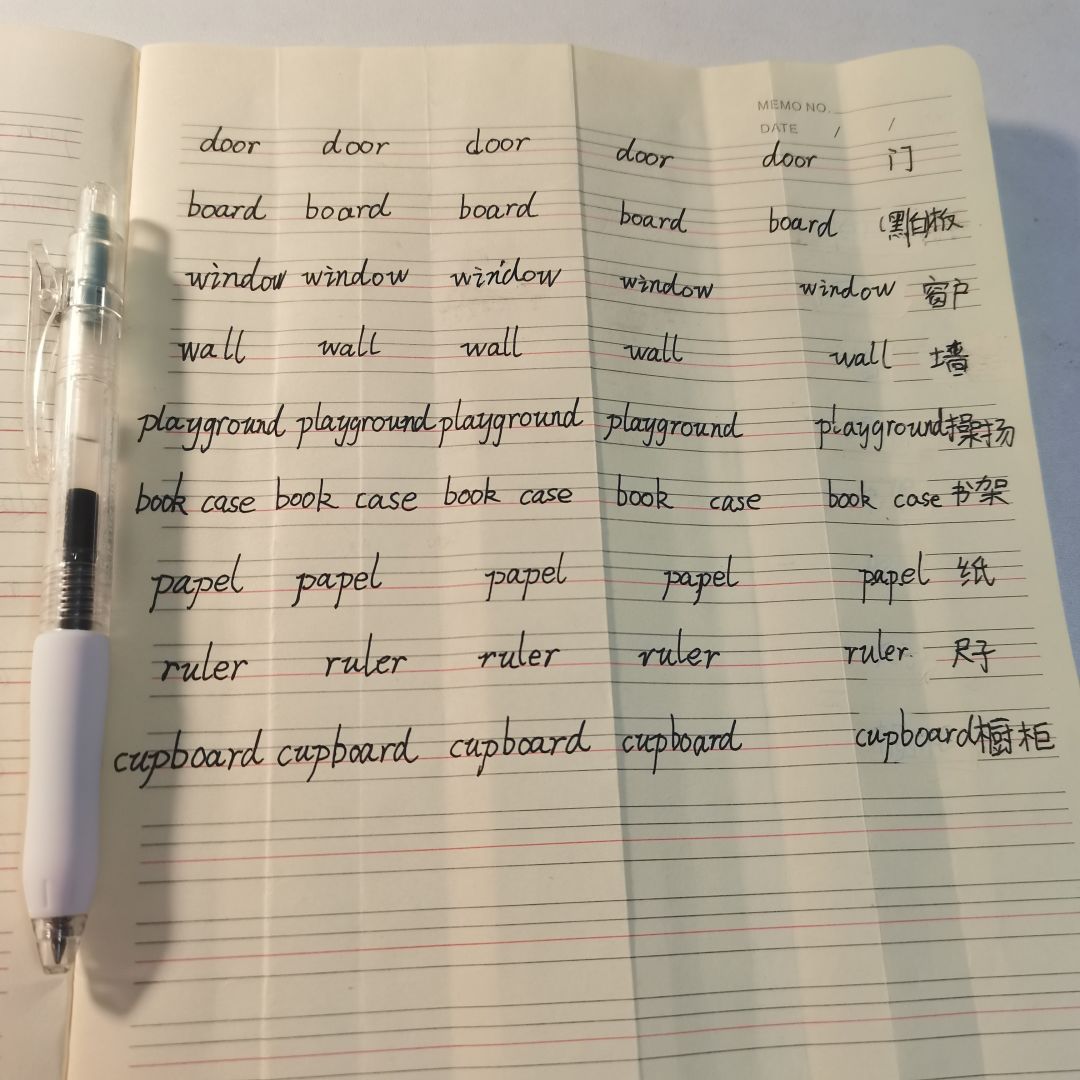 MEMO NO.
DATE / /
door door door door door 门
board board board board board (黑白板
window window window window window 窗户
wall wall wall wall wall 墙
playground playground playground playground playground 操场
book case book case book case book case book case 书架
papel papel papel papel papel 纸
ruler ruler ruler ruler ruler 尺子
cupboard cupboard cupboard cupboard cupboard 橱柜